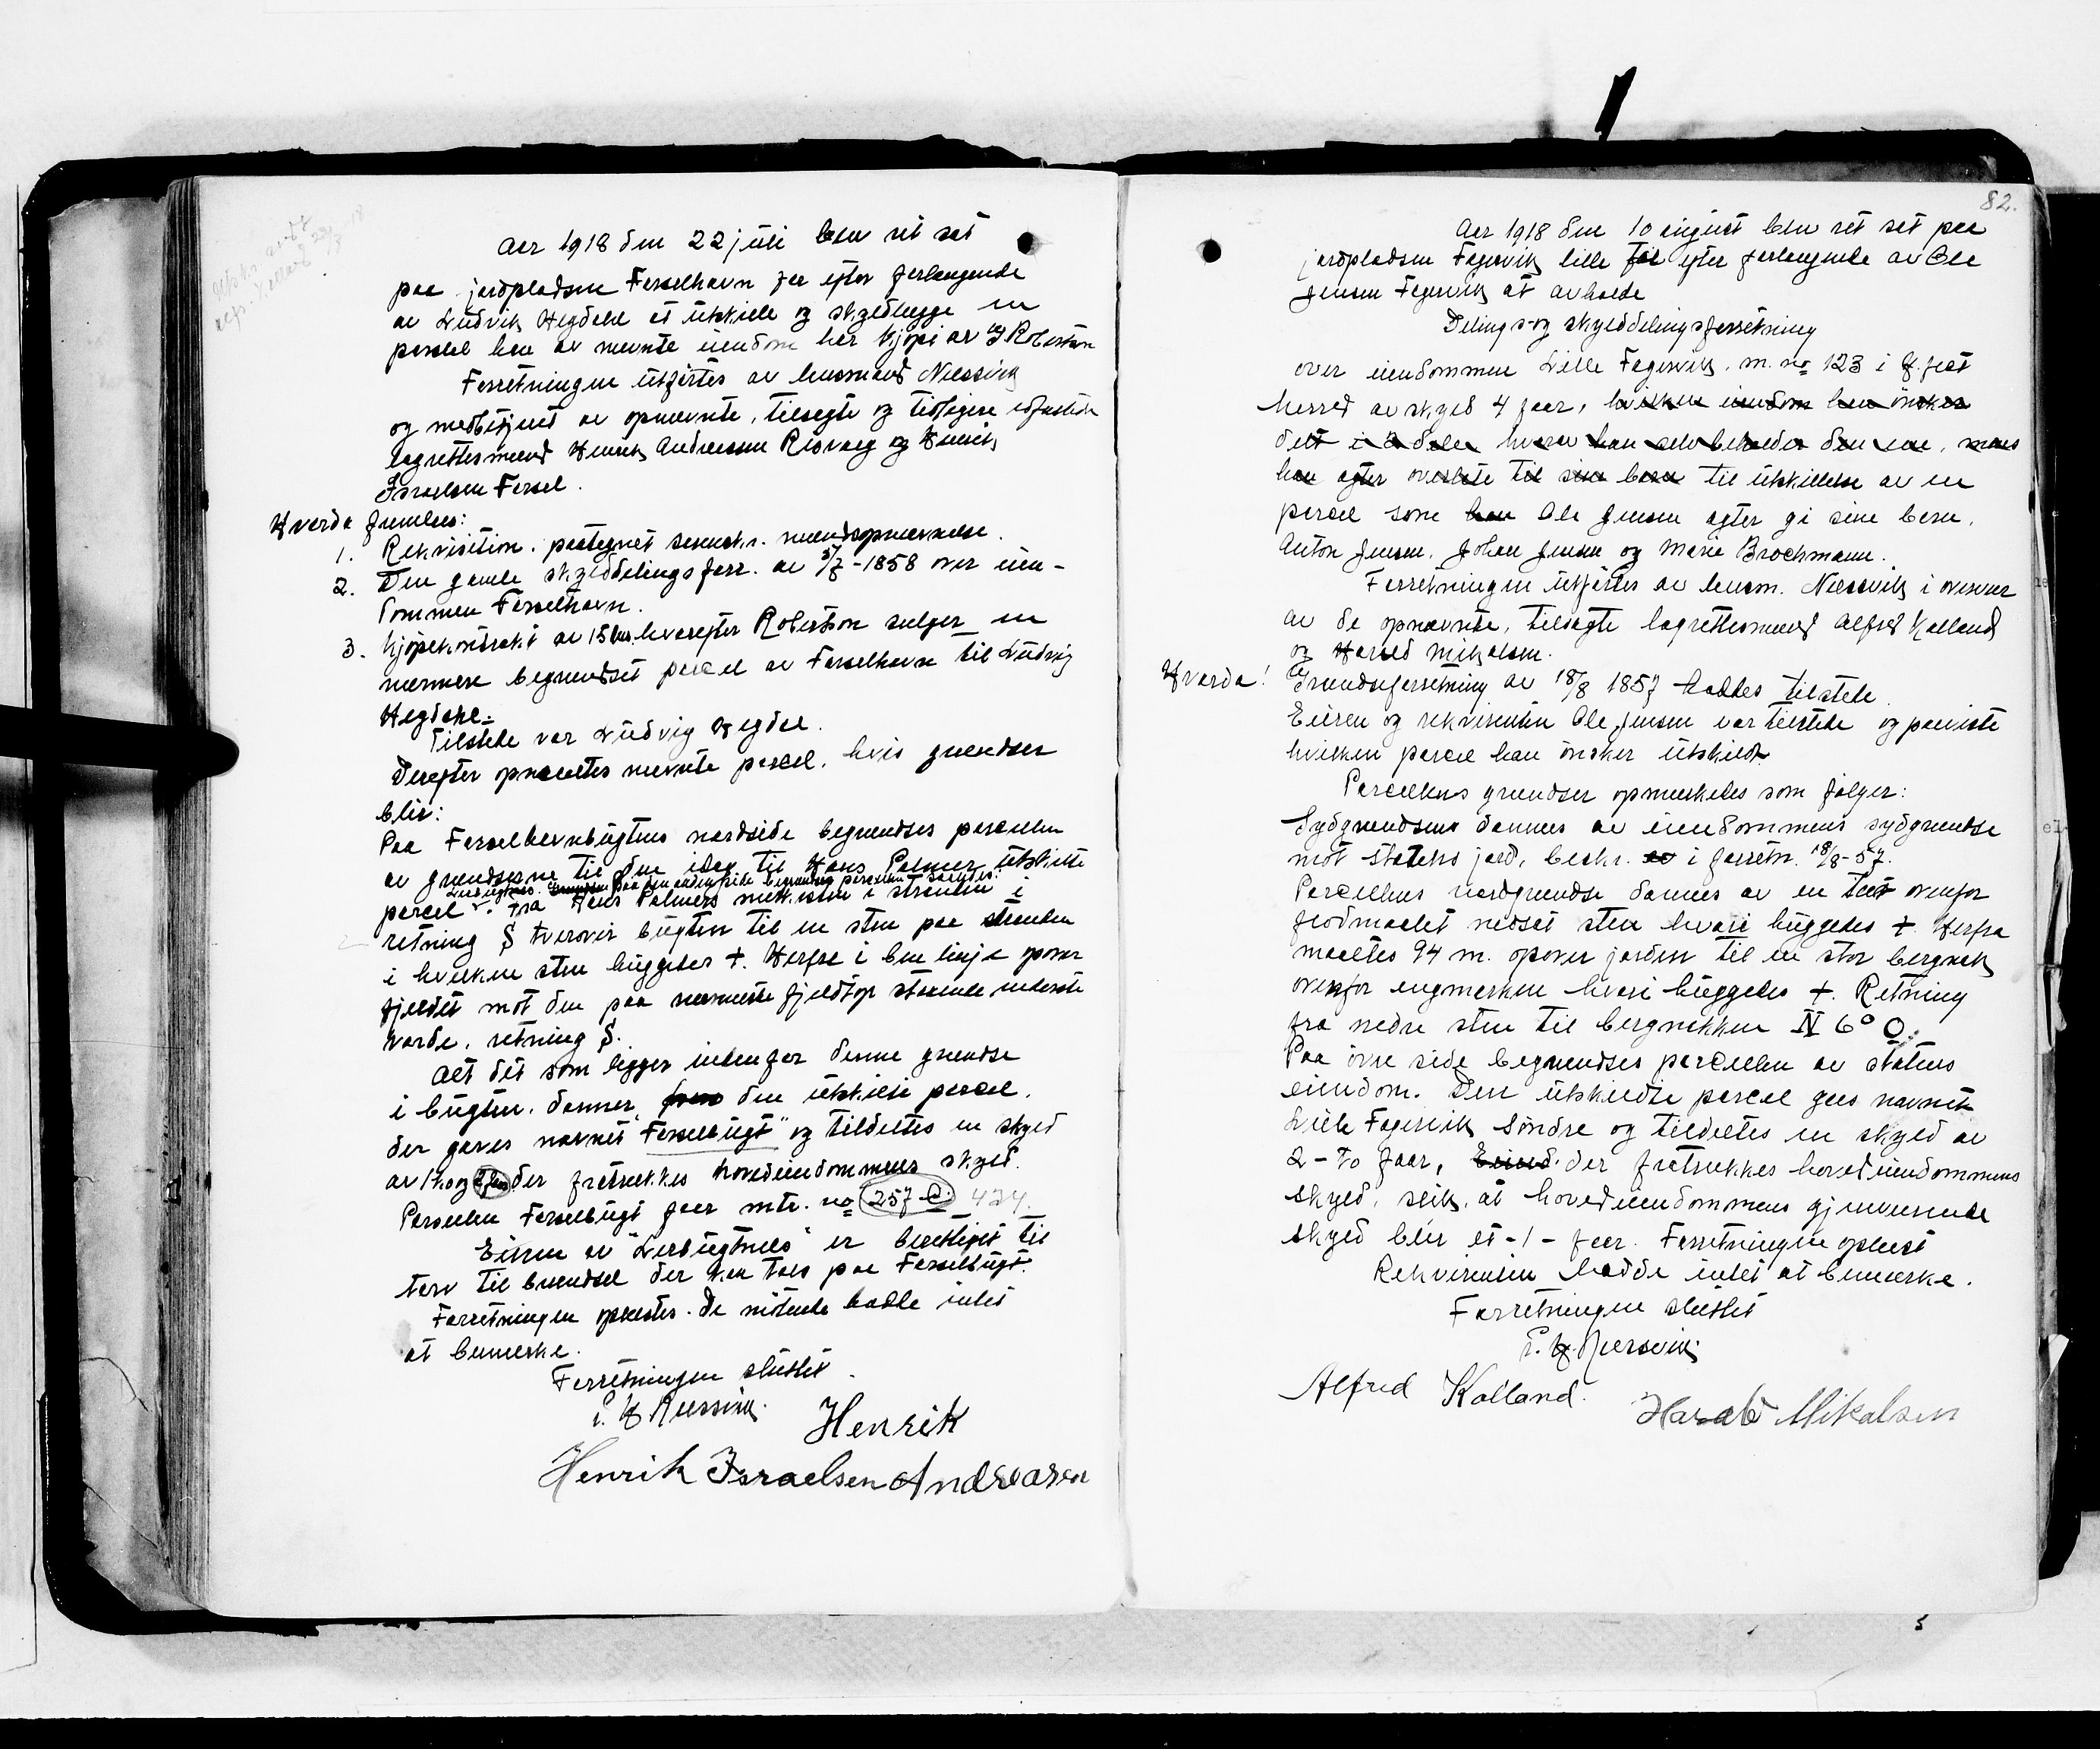 Aar 1918 den 22 juli blev ret sat
paa jordpladsen Forselhavn for efter forlangende
av Ludvik Hegdahl at utskille og skyldlægge en
parsel han av nævnte eiendom har kjøpt av Robertson
Forretningen utførtes av lensmand Niessvik
og medbetjent av opnævnte, tilsagte og tidligere edfæstede
lagrettesmænd Henrik Andreassen Risvaag og Henrik
Israelsen Forsel.
Hvorda fremlaes:
1. Rekvisition. paategnet mændsopnævnelse.
2. Den gamle skylddelingsforr. av 5/7-1858 over eien-
dommen Forselhavn.
3. Kjøpekontrakt av hvorefter Robertson sælger en
nærmere begrændset parcel av Forselhavn til Ludvig
Hegdahl.
Tilstede var Ludvig Hegdal.
Derefter opmaaltes nævnte parcel, hvis grændser
blir:
Paa Forselhavnbugtens nordside begrændses parcellen
av grændserne til den idag til Hans Palmer utskilte
paa den anden side begrændses parcellen saaledes:
parcel Fra Hans Palmers merkesten i stranden i
retning S tverover bugten til en sten paa stranden
i hvilken sten huggedes +. Herfra i linje opover
fjeldet mot den paa nærmeste fjeldtop staaende nederste
varde, retning S.
Alt det som ligger indenfor denne grændse
i bugten, danner den utskilte parcel,
der gaves navnet "Forselbugt" og tildeltes en skyld
av der fratrækkes hovedeiendommens skyld.
Parcellen Forselbugt faar mtr. no 257 C. 434.
Eieren av "Leirbugtnes" er berettiget til
torv til brændsel der kan taes paa Forselbugt.
Forretningen oplæstes. De møtende hadde intet
at bemerke.
Forretningen sluttet.
Henrik
Henrik Israelsen Andreasen
82.
Aar 1918 den 10 august blev ret sat paa
jordpladsen Fagervik lille for efter forlangende av Ole
Jensen Fagervik at avholde
Delings- og skylddelingsforretning
over eiendommen Lille Fagervik. m. no 123 i
herred av skyld 4 øre, hvilken eiendom han ønsker
delt i 2 dele, hvorav han selv beholder den ene, mens
han agter overlate til sine barn til utskillelse av en
parcel som han Ole Jensen agter gi sine barn,
Anton Jensen, Johan Jensen og Marie Brochmann.
Forretningen utførtes av lensm. Niessvik i overvær
av de opnævnte, tilsagte lagrettesmænd Alfred Kolland
og Harald Mikalsen.
Hvorda! Grændseforretning av 18/8 1857 haddes tilstede
Eieren og rekvirenten Ole Jensen var tilstede og paaviste
hvilken parcel han ønsker utskildt.
Parcellens grændser opmerkedes som følger:
Sydgrændsen dannes av eiendommens sydgrændse
mot statens jord, beskr. av i forretn. 18/8-57.
Parcellens nordgrændse dannes av en tæt ovenfor
flodmaalet nedsat sten hvori huggedes +. Herfra
maaltes 94 m. opover jorden til en stor bergnak
ovenfor engmarken hvori huggedes +. Retning
fra nedre sten til bergnakken N 6° O.
Paa øvre side begrændses parcellen av statens
eiendom. Den utskildte parcel gaves navnet
Lille Fagervik Søndre og tildeltes en skyld av
2 - to øre, der fratrækkes hovedeiendommens
skyld, slik, at hovedeiendommens gjenværende
skyld blir et - 1 - øre. Forretningen oplæst
Rekvirenten hadde intet at bemerke.
Forretningen sluttet
Alfred Kolland. Harald Mikalsen